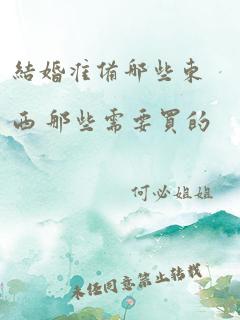 結婚准備那些東
西 那些需要買的
何必姐姐
未经同意禁止转载